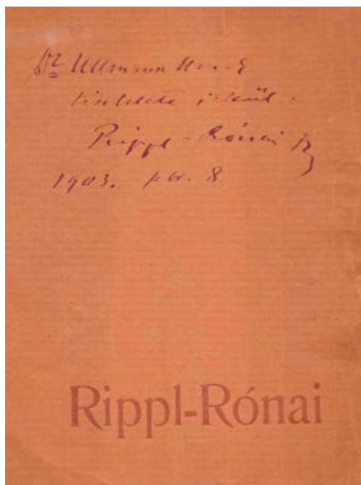 Dr Ullmann
tisztelete jeléül.
Rippl-Rónai
1903. 8
Rippl-Rónai